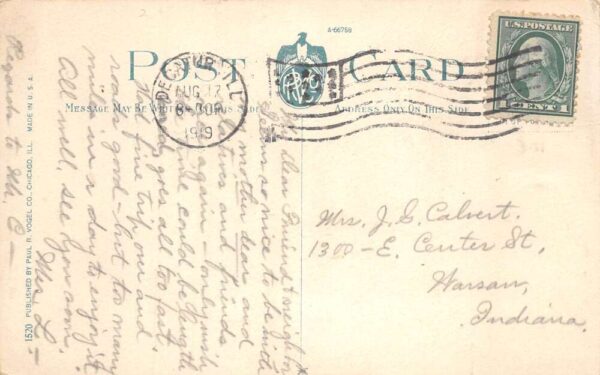 A-66758
POST CARD
MESSAGE MAY BE WRITTEN ON THIS SIDE
ADDRESS ONLY ON THIS SIDE
U.S. POSTAGE
1 CENT 1
DECATUR, ILL.
AUG 17
8-30P
1919
My dear friend & neighbor
Seems so nice to be with
my mother dear and
relatives and friends
again - only wish
time could be length
goes all too fast.
Had fine trip over and
roads good - but too many
miles in a day to enjoy it
All well, see you soon,
Mc L-
Regards to Mr. C-
Mrs. J. G. Calvert.
1300-E. Center St,
Warsaw,
Indiana.
1520 PUBLISHED BY PAUL R. VOGEL CO., CHICAGO, ILL. MADE IN U.S.A.